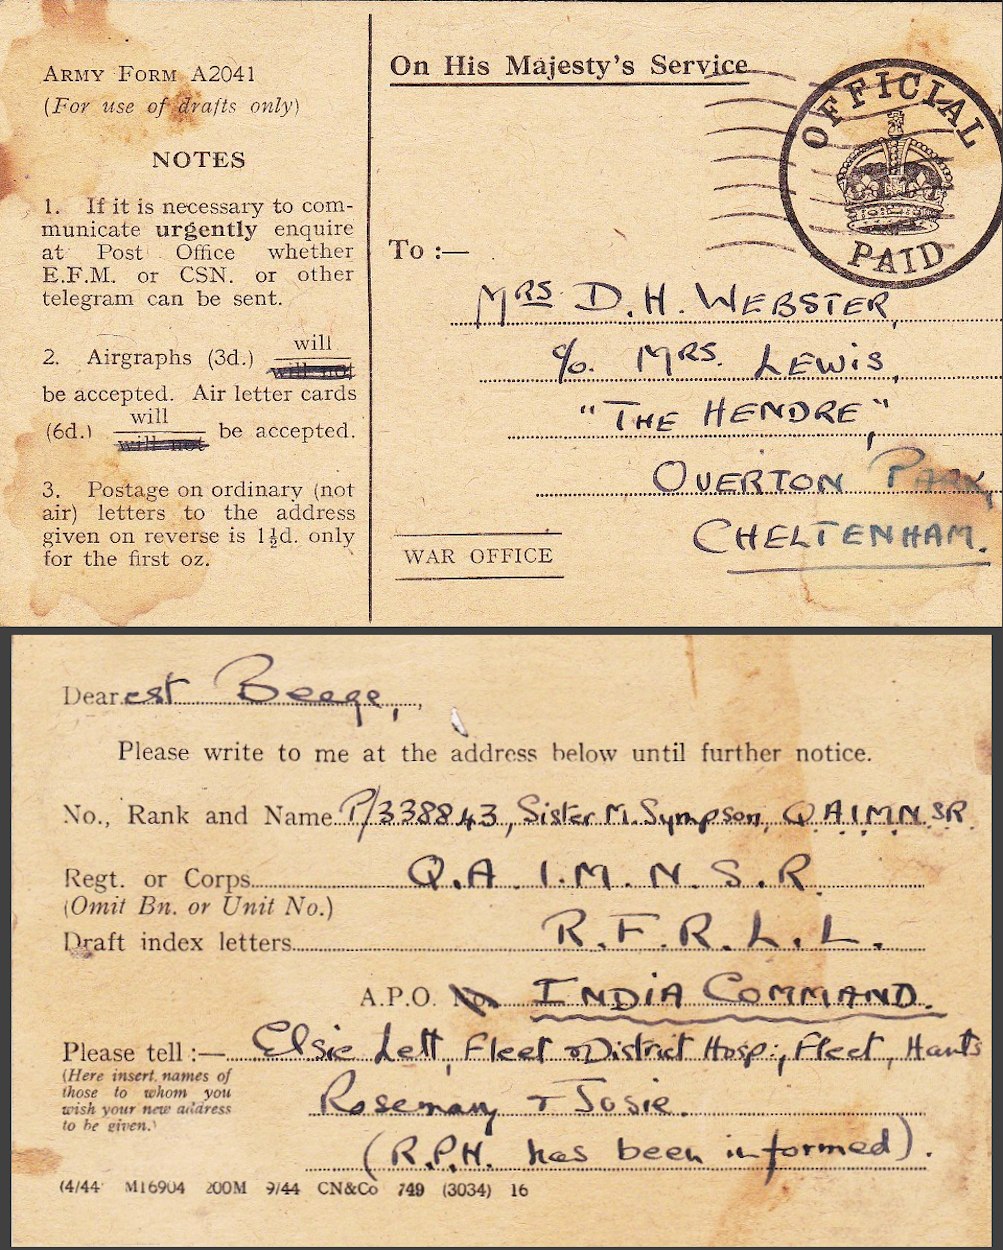 ARMY FORM A2041
(For use of drafts only)
NOTES
1. If it is necessary to com-
municate urgently enquire
at Post Office whether
E.F.M. or CSN. or other
telegram can be sent.
2. Airgraphs (3d.) will
will not
be accepted. Air letter cards
will
(6d.) will not be accepted.
3. Postage on ordinary (not
air) letters to the address
given on reverse is 1½d. only
for the first oz.
On His Majesty's Service
OFFICIAL
PAID
To :—
MRS D. H. WEBSTER,
c/o. MRS. LEWIS,
"THE HENDRE",
OVERTON PARK,
CHELTENHAM.
WAR OFFICE
Dearest Beege,
Please write to me at the address below until further notice.
No., Rank and Name P/338843, Sister M. Sympson, Q.A.I.M.N.S.R.
Regt. or Corps Q.A.I.M.N.S.R.
(Omit Bn. or Unit No.)
Draft index letters R.F.R.L.L.
A.P.O. No. INDIA COMMAND.
Please tell :— Elsie Lett, Fleet & District Hosp:, Fleet, Hants
(Here insert names of
those to whom you
wish your new address
to be given.)
Rosemary & Josie.
(R.P.H. has been informed).
(4/44) M16904 200M 9/44 CN&Co 749 (3034) 16